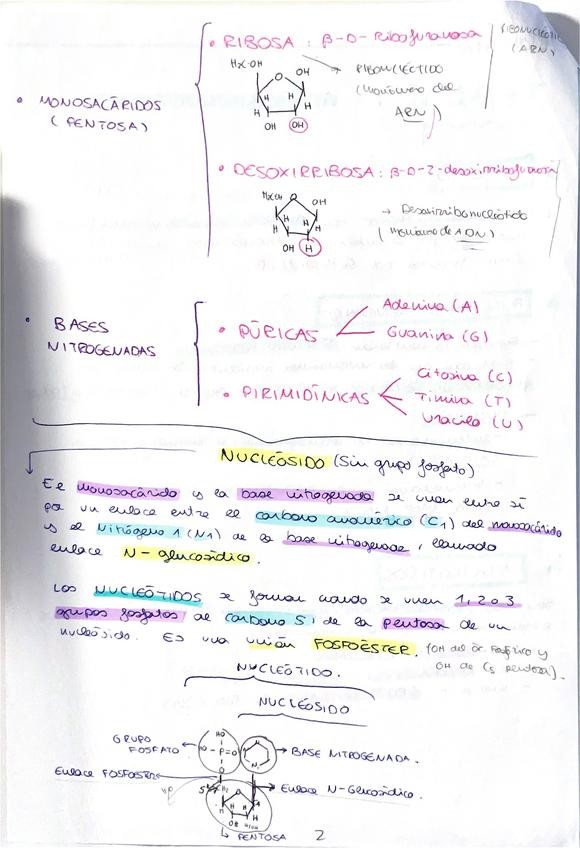 • RIBOSA : β-D-Ribofuranosa
(ARN)
H₂C-OH
O
OH
H
H
H
H
OH
OH
→ RIBONUCLEÓTIDO
(Monómero del
ARN)
• MONOSACÁRIDOS
(PENTOSA)
• DESOXIRRIBOSA : β-D-2-desoxirribofuranosa
O
OH
H
H
H
H
OH
H
→ Desoxirribonucleótido
(Monómero de ADN)
• BASES
NITROGENADAS
• PÚRICAS
Adenina (A)
Guanina (G)
• PIRIMIDÍNICAS
Citosina (C)
Timina (T)
Uracilo (U)
NUCLEÓSIDO (Sin grupo fosfato)
El monosacárido y la base nitrogenada se unen entre sí
por un enlace entre el carbono anomérico (C₁) del monosacárido
y el Nitrógeno 1 (N1) de la base nitrogenada, llamado
enlace N-glucosídico.
Los NUCLEÓTIDOS se forman cuando se unen 1, 2 o 3
grupos fosfatos al carbono 5' de la pentosa de un
nucleósido. Es una unión FOSFOÉSTER. (OH del ác. fosfórico y
OH de C5 pentosa).
NUCLEÓTIDO.
NUCLEÓSIDO
GRUPO
FOSFATO
HO
HO - P = O
O
N
→ BASE NITROGENADA.
Enlace FOSFOSTER
5'
CH₂
→ Enlace N-Glucosídico.
O
H
H
H
OH
→ PENTOSA
2